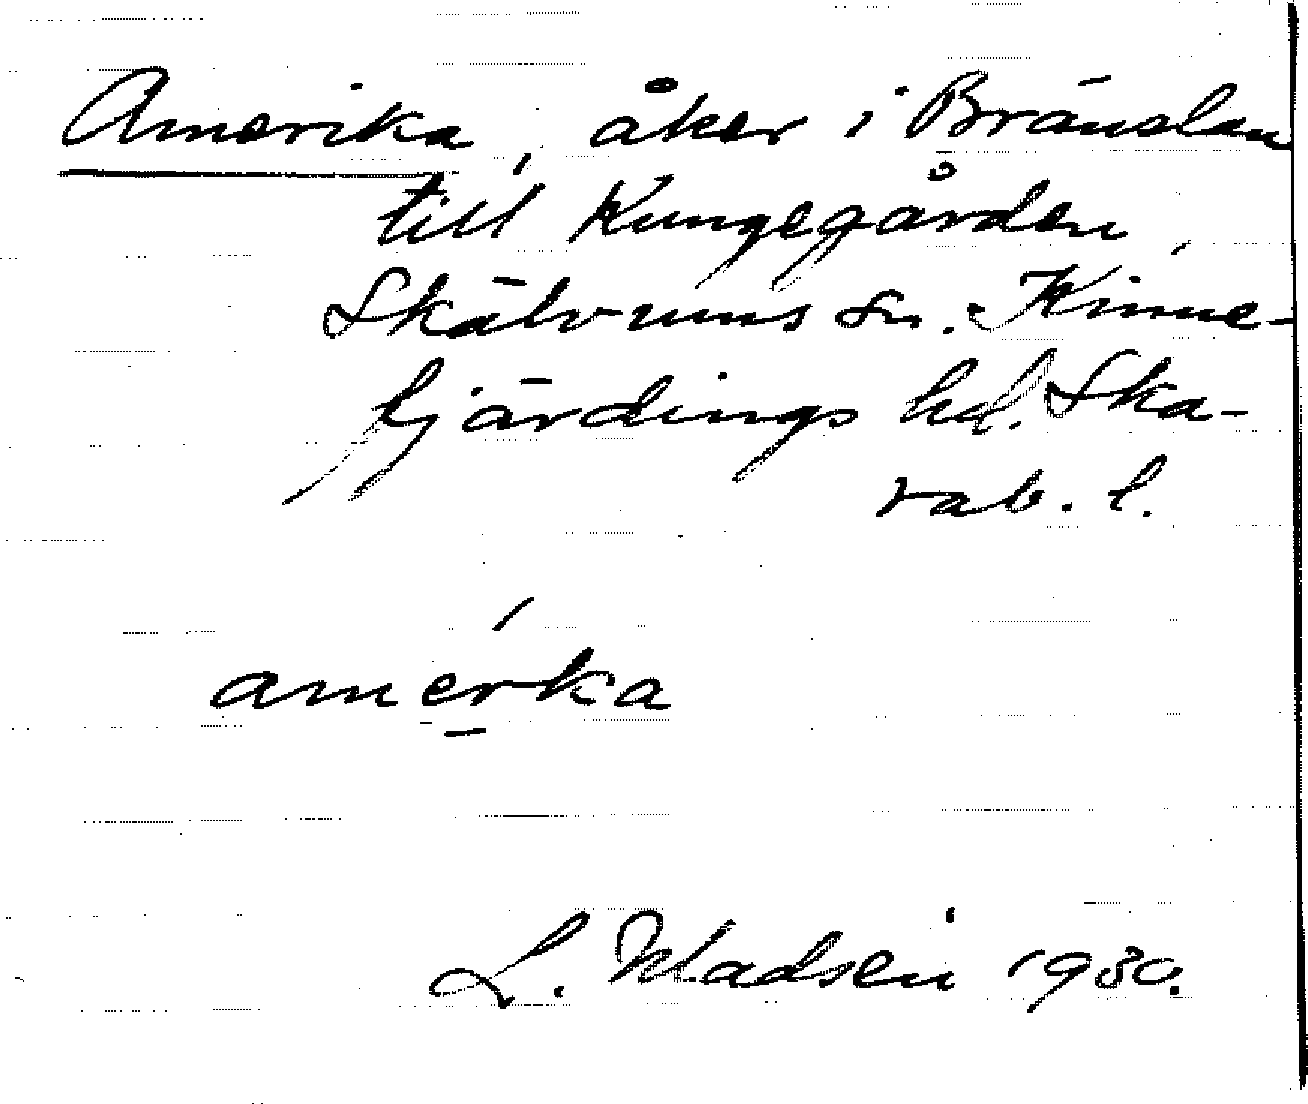 Amerika, åker i Bränslan
till Kungegården,
Skälvums sn. Kinne-
fjärdings hd. Ska-
rab. l.
amerka
L. Madsen 1930.